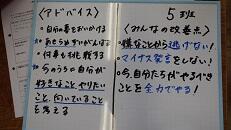 〈アドバイス〉
・自分の夢をおいかける
・あきらめずにがんばる
・何事も挑戦する
・今のうちに自分が
好きなこと、やりたい
こと、向いていること
を考える
5班
〈みんなの改善点〉
・嫌なことから逃げない！
・マイナス発言をしない！
・今、自分たちがやるべき
ことを全力でやる！